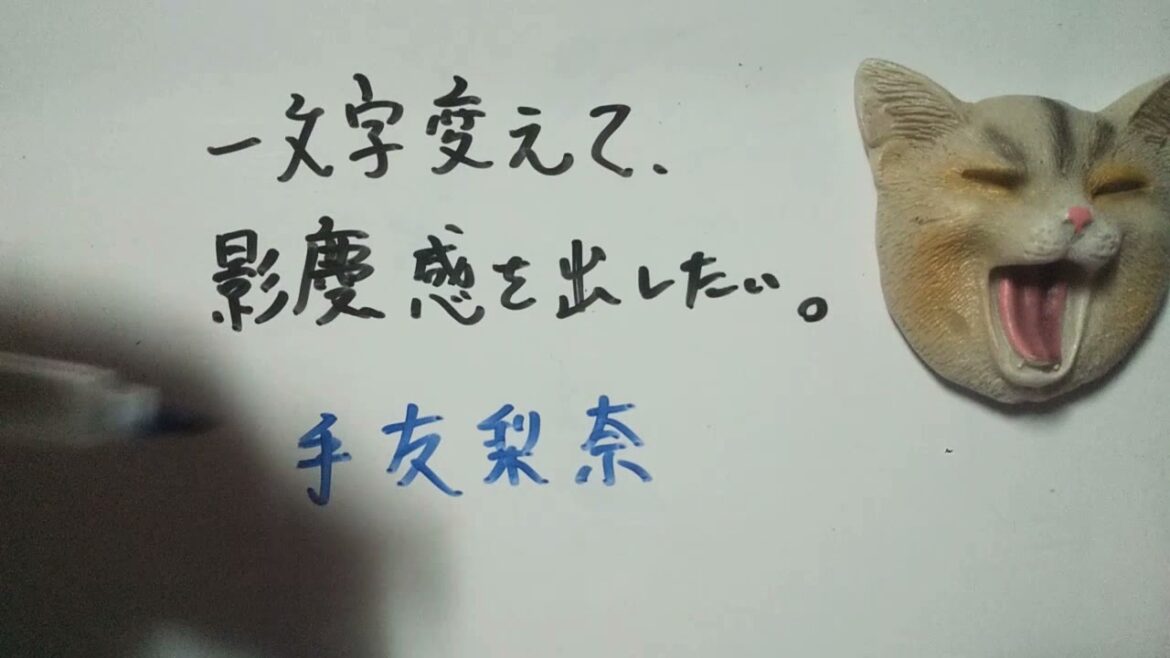 一文字変えて、
影慶感を出したい。
手友梨奈